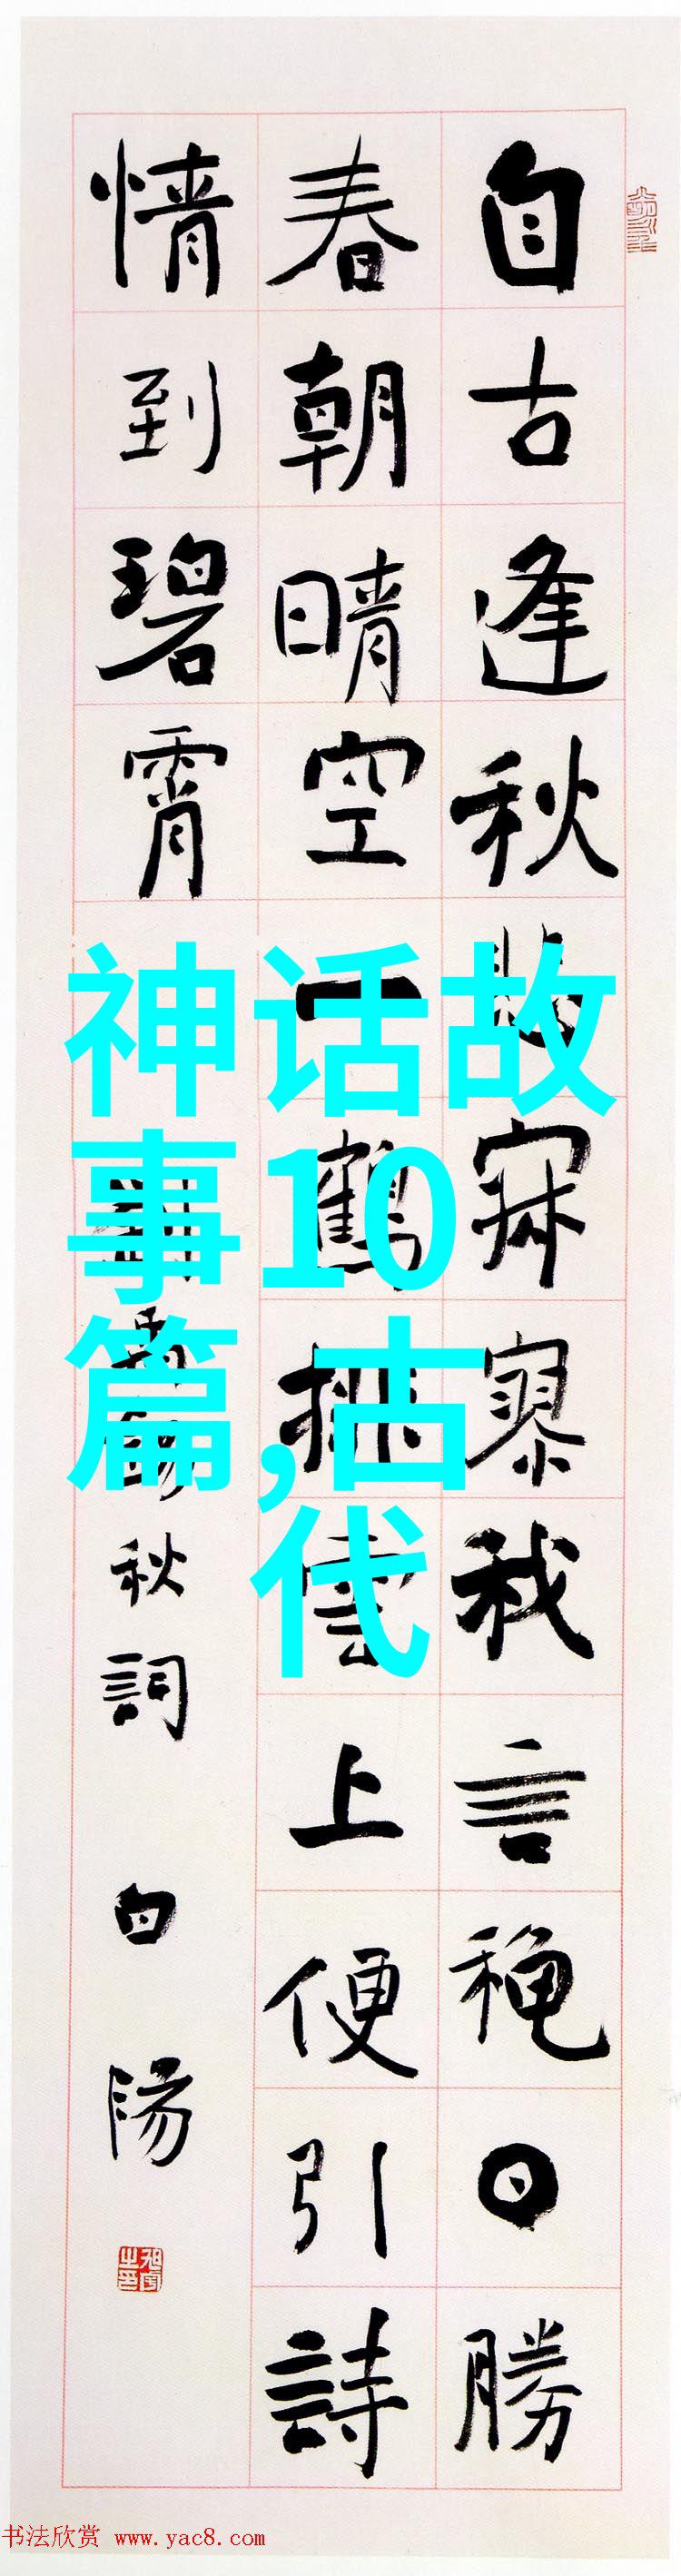 自古逢秋悲寂寥我言穐日勝
春朝晴空一鶴排雲上便引詩
情到碧霄
劉禹錫秋詞 白陽
神话故
事10
篇,古
代
书法欣赏 www.yac8.com